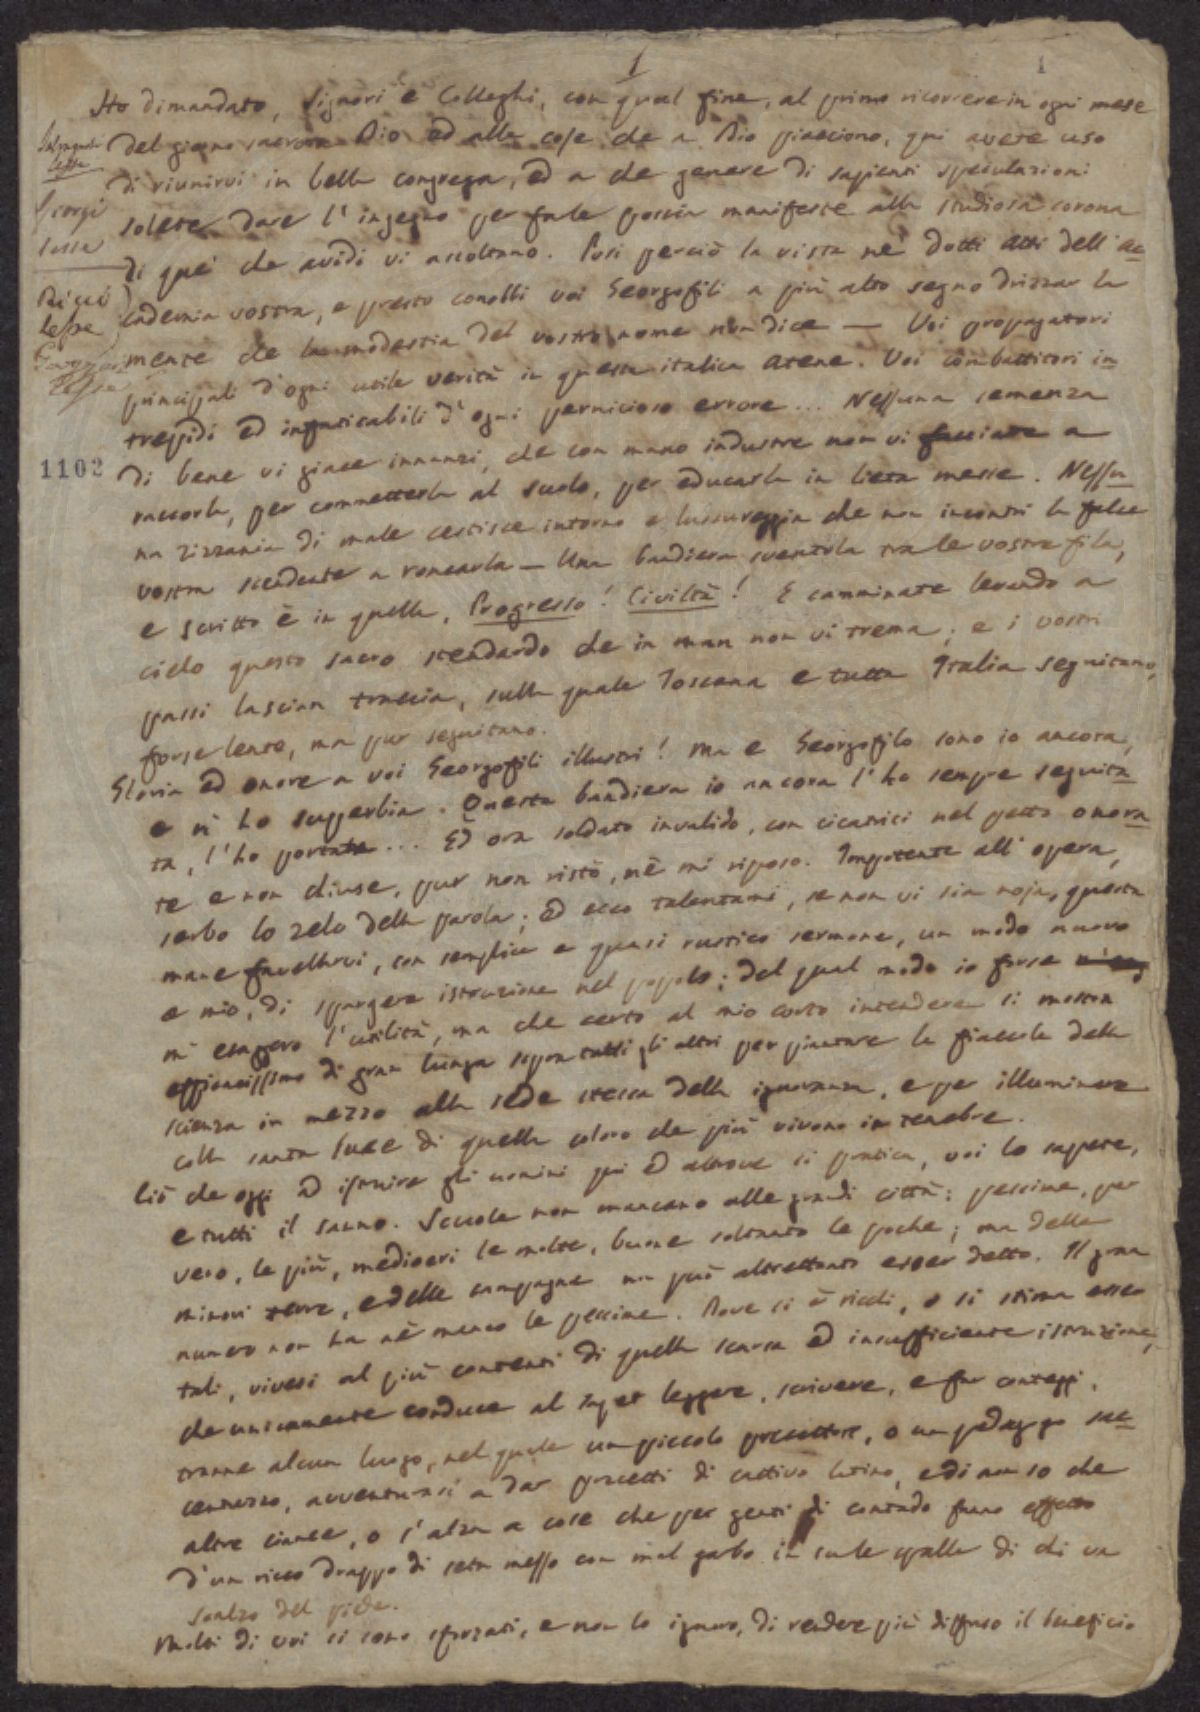 1 1
Ho dimandato, Signori e Colleghi, con qual fine, al primo ricorrere in ogni mese
del giorno sacro a Dio ed alle cose che a Dio piacciono, qui avete uso
di riunirvi in bella congrega, ed a che genere di sapienti speculazioni
solete dare l'ingegno per farle poscia manifeste alla studiosa corona
di quei che avidi vi ascoltano. Posi perciò la vista ne' dotti Atti dell'Ac=
cademia vostra, e presto conobbi voi Georgofili a più alto segno drizzar la
mente che la modestia del vostro nome non dice — Voi propagatori
principali d'ogni utile verità in questa italica Atene. Voi combattitori in=
trepidi ed infaticabili d'ogni pernicioso errore... Nessuna semenza
di bene vi giace innanzi, che con mano industre non vi facciate a
raccorla, per commetterla al suolo, per educarla in lieta messe. Nessu=
na zizzania di male cestisce intorno e lussureggia che non incontri la falce
vostra scendente a roncarla — Una bandiera sventola tra le vostre fila,
e scritto è in quella, Progresso! Civiltà! E camminate levando a
cielo questo sacro stendardo che in man non vi trema; e i vostri
passi lascian traccia, sulla quale Toscana e tutta Italia seguitano,
forse lente, ma pur seguitano.
Gloria ed onore a voi Georgofili illustri! Ma e Georgofilo sono io ancora,
e n'ho superbia. Questa bandiera io ancora l'ho sempre seguita=
ta, l'ho portata... Ed ora soldato invalido, con cicatrici nel petto onora=
te e non chiuse, pur non ristò, nè mi riposo. Impotente all'opera,
serbo lo zelo della parola; ed ecco talentami, se non vi sia noja, questa
mane favellarvi, con semplice e quasi rustico sermone, un modo nuovo
e mio, di spargere istruzione nel popolo; del qual modo io forse
m'esagero l'utilità, ma che certo al mio corto intendere si mostra
efficacissimo di gran lunga sopra tutti gli altri per piantare la fiaccola della
scienza in mezzo alla sede stessa della ignoranza, e per illuminare
colla santa luce di quella coloro che più vivono in tenebre.
Ciò che oggi ad istruire gli uomini qui ed altrove si pratica, voi lo sapete,
e tutti il sanno. Scuole non mancano alle grandi città: pessime, per
vero, le più, mediocri le molte, buone soltanto le poche; ma delle
minori terre, e delle campagne non può altrettanto esser detto. Il gran
numero non ha nè manco le pessime. Dove si è ricchi, o si stima esser
tali, vivesi al più contenti di quella scarsa ed insufficiente istruzione,
che unicamente conduce al saper leggere, scrivere, e far conteggi,
tranne alcun luogo, nel quale un piccolo precettore, o un pedagogo sac=
centuzzo, avventurasi a dar precetti di cattivo latino, e di non so che
altre ciance, o s'alza a cose che per genti di contado fanno effetto
d'un ricco drappo di seta messo con mal garbo in su le spalle di chi va
scalzo del piede.
Molti di voi si sono sforzati, e non lo ignoro, di rendere più diffuso il beneficio
lesse
lesse
Ricci
lesse
lesse
1102